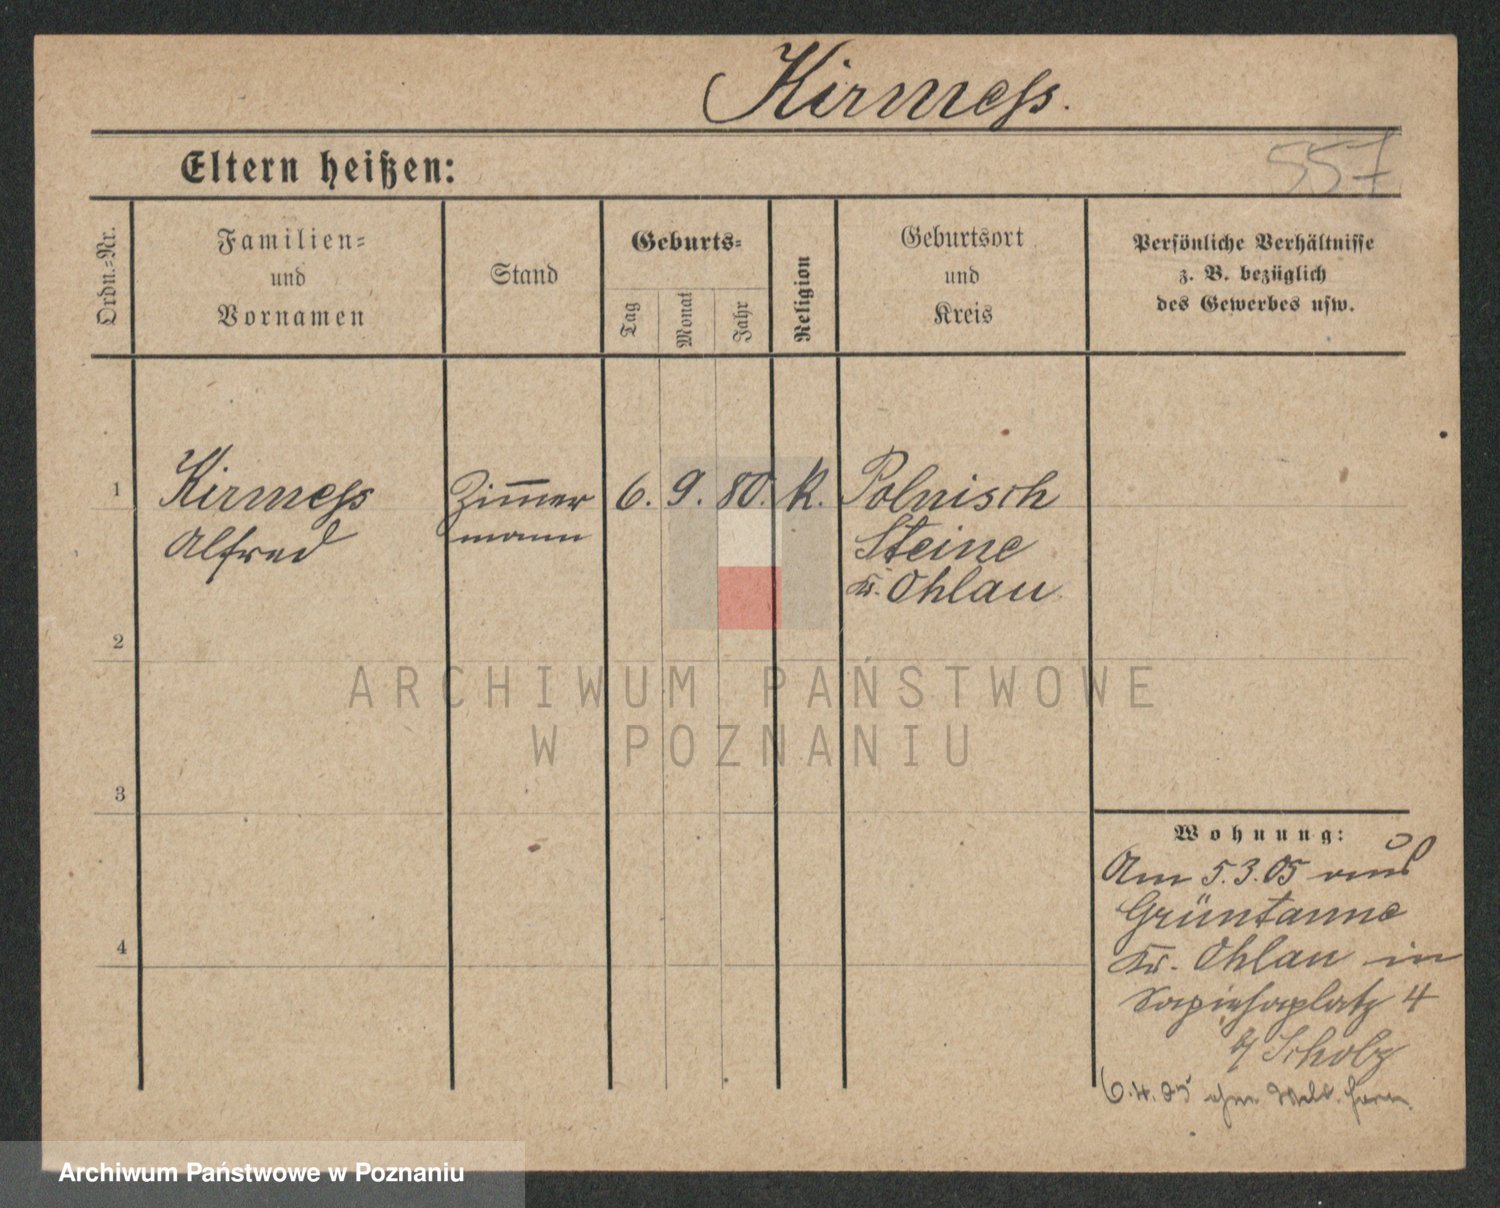 Kirmess.
Eltern heißen:
557
Ordn.=Nr.
Familien=
und
Vornamen
Stand
Geburts=
Tag
Monat
Jahr
Religion
Geburtsort
und
Kreis
Persönliche Verhältnisse
z. B. bezüglich
des Gewerbes usw.
1
Kirmess
Alfred
Zim̅er
mann
6. 9. 80. K.
Polnisch
Steine
Kr. Ohlau
2
3
4
Wohnung:
Am 5.3.05 aus
Grüntanne
Kr. Ohlau in
Sapiehaplatz 4
b/ Scholz
6.4.05
ARCHIWUM PAŃSTWOWE
W POZNANIU
Archiwum Państwowe w Poznaniu